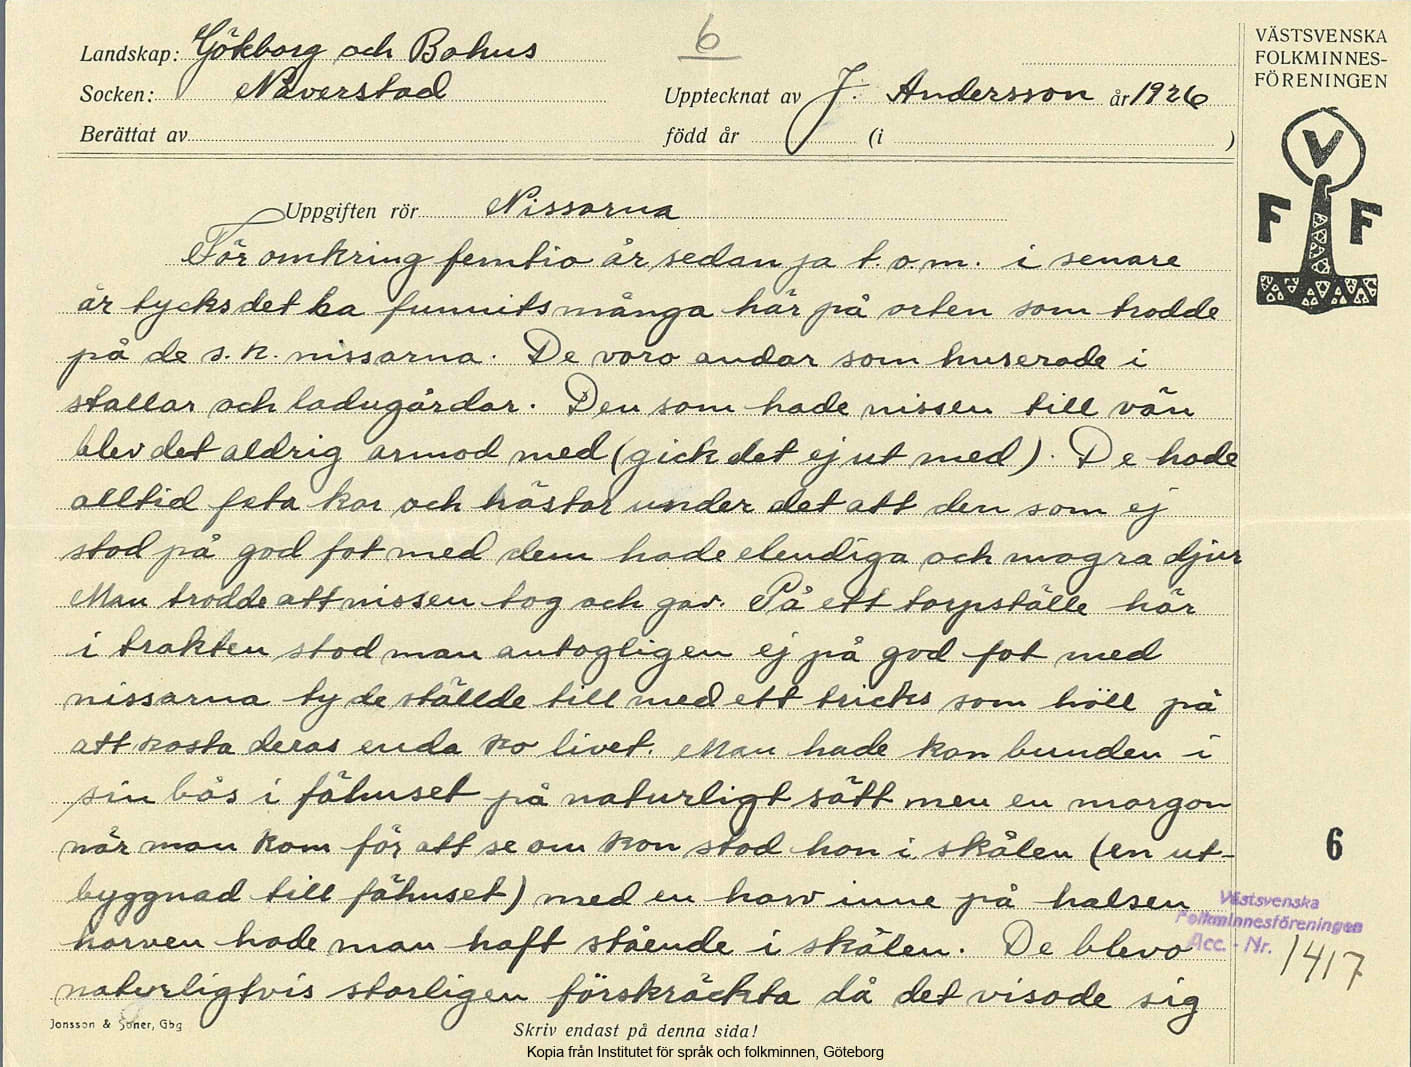 6
VÄSTSVENSKA
FOLKMINNES-
FÖRENINGEN
V
F F
Landskap: Göteborg och Bohus
Socken: Naverstad
Upptecknat av J. Andersson år 1926
Berättat av
född år (i )
Uppgiften rör Nissarna
För omkring femtio år sedan ja t.o.m. i senare
år tycks det ha funnits många här på orten som trodde
på de s.k. nissarna. De voro andar som huserade i
stallar och ladugårdar. Den som hade nissen till vän
blev det aldrig armod med (gick det ej ut med). De hade
alltid feta kor och hästar under det att den som ej
stod på god fot med dem hade elendiga och magra djur
Man trodde att nissen tog och gav. På ett torpställe här
i trakten stod man antagligen ej på god fot med
nissarna ty de ställde till med ett tricks som höll på
att kosta deras enda ko livet. Man hade kon bunden i
sin bås i fähuset på naturligt sätt men en morgon
när man kom för att se om kon stod hon i skålen (en ut-
byggnad till fähuset) med en harv inne på halsen
harven hade man haft stående i skålen. De blevo
naturligtvis storligen förskräckta då det visade sig
6
Västsvenska
Folkminnesföreningen
Acc. - Nr. 1417
Jonsson & Söner, Gbg
Skriv endast på denna sida!
Kopia från Institutet för språk och folkminnen, Göteborg